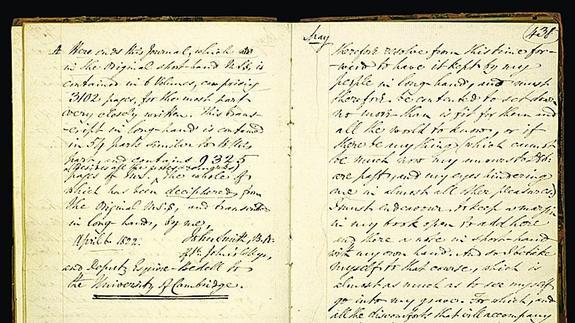 Here ends this Journal, which
in the Original short-hand is
contained in 6 Volumes, comprising
3102 pages, for the most part
very closely written. This trans-
cript in long-hand is contained
in 54 parts similar to
part, and contains 9325
pages of the whole of
which has been deciphered from
the Original and transcribed
in long-hand, by me,
April 1822. John Smith, B.A.
St. John's
and Deputy Esquire-bedell to
the University of Cambridge.
May
431
therefore resolve from this time for-
ward to have it kept by my
people in long-hand, and must
therefore be contented to set down
no more than is fit for them and
all the world to know, or if
there be any thing (which cannot
be much now my amours to Deb
are past, and my eyes hindering
me in almost all other pleasures)
I must endeavour to keep a margin
in my book open to add here
and there a note in short-hand
with my own hand. And so I betake
myself to that course, which is
almost as much as to see myself
go into my grave. For which, and
all the discomforts that will accompany